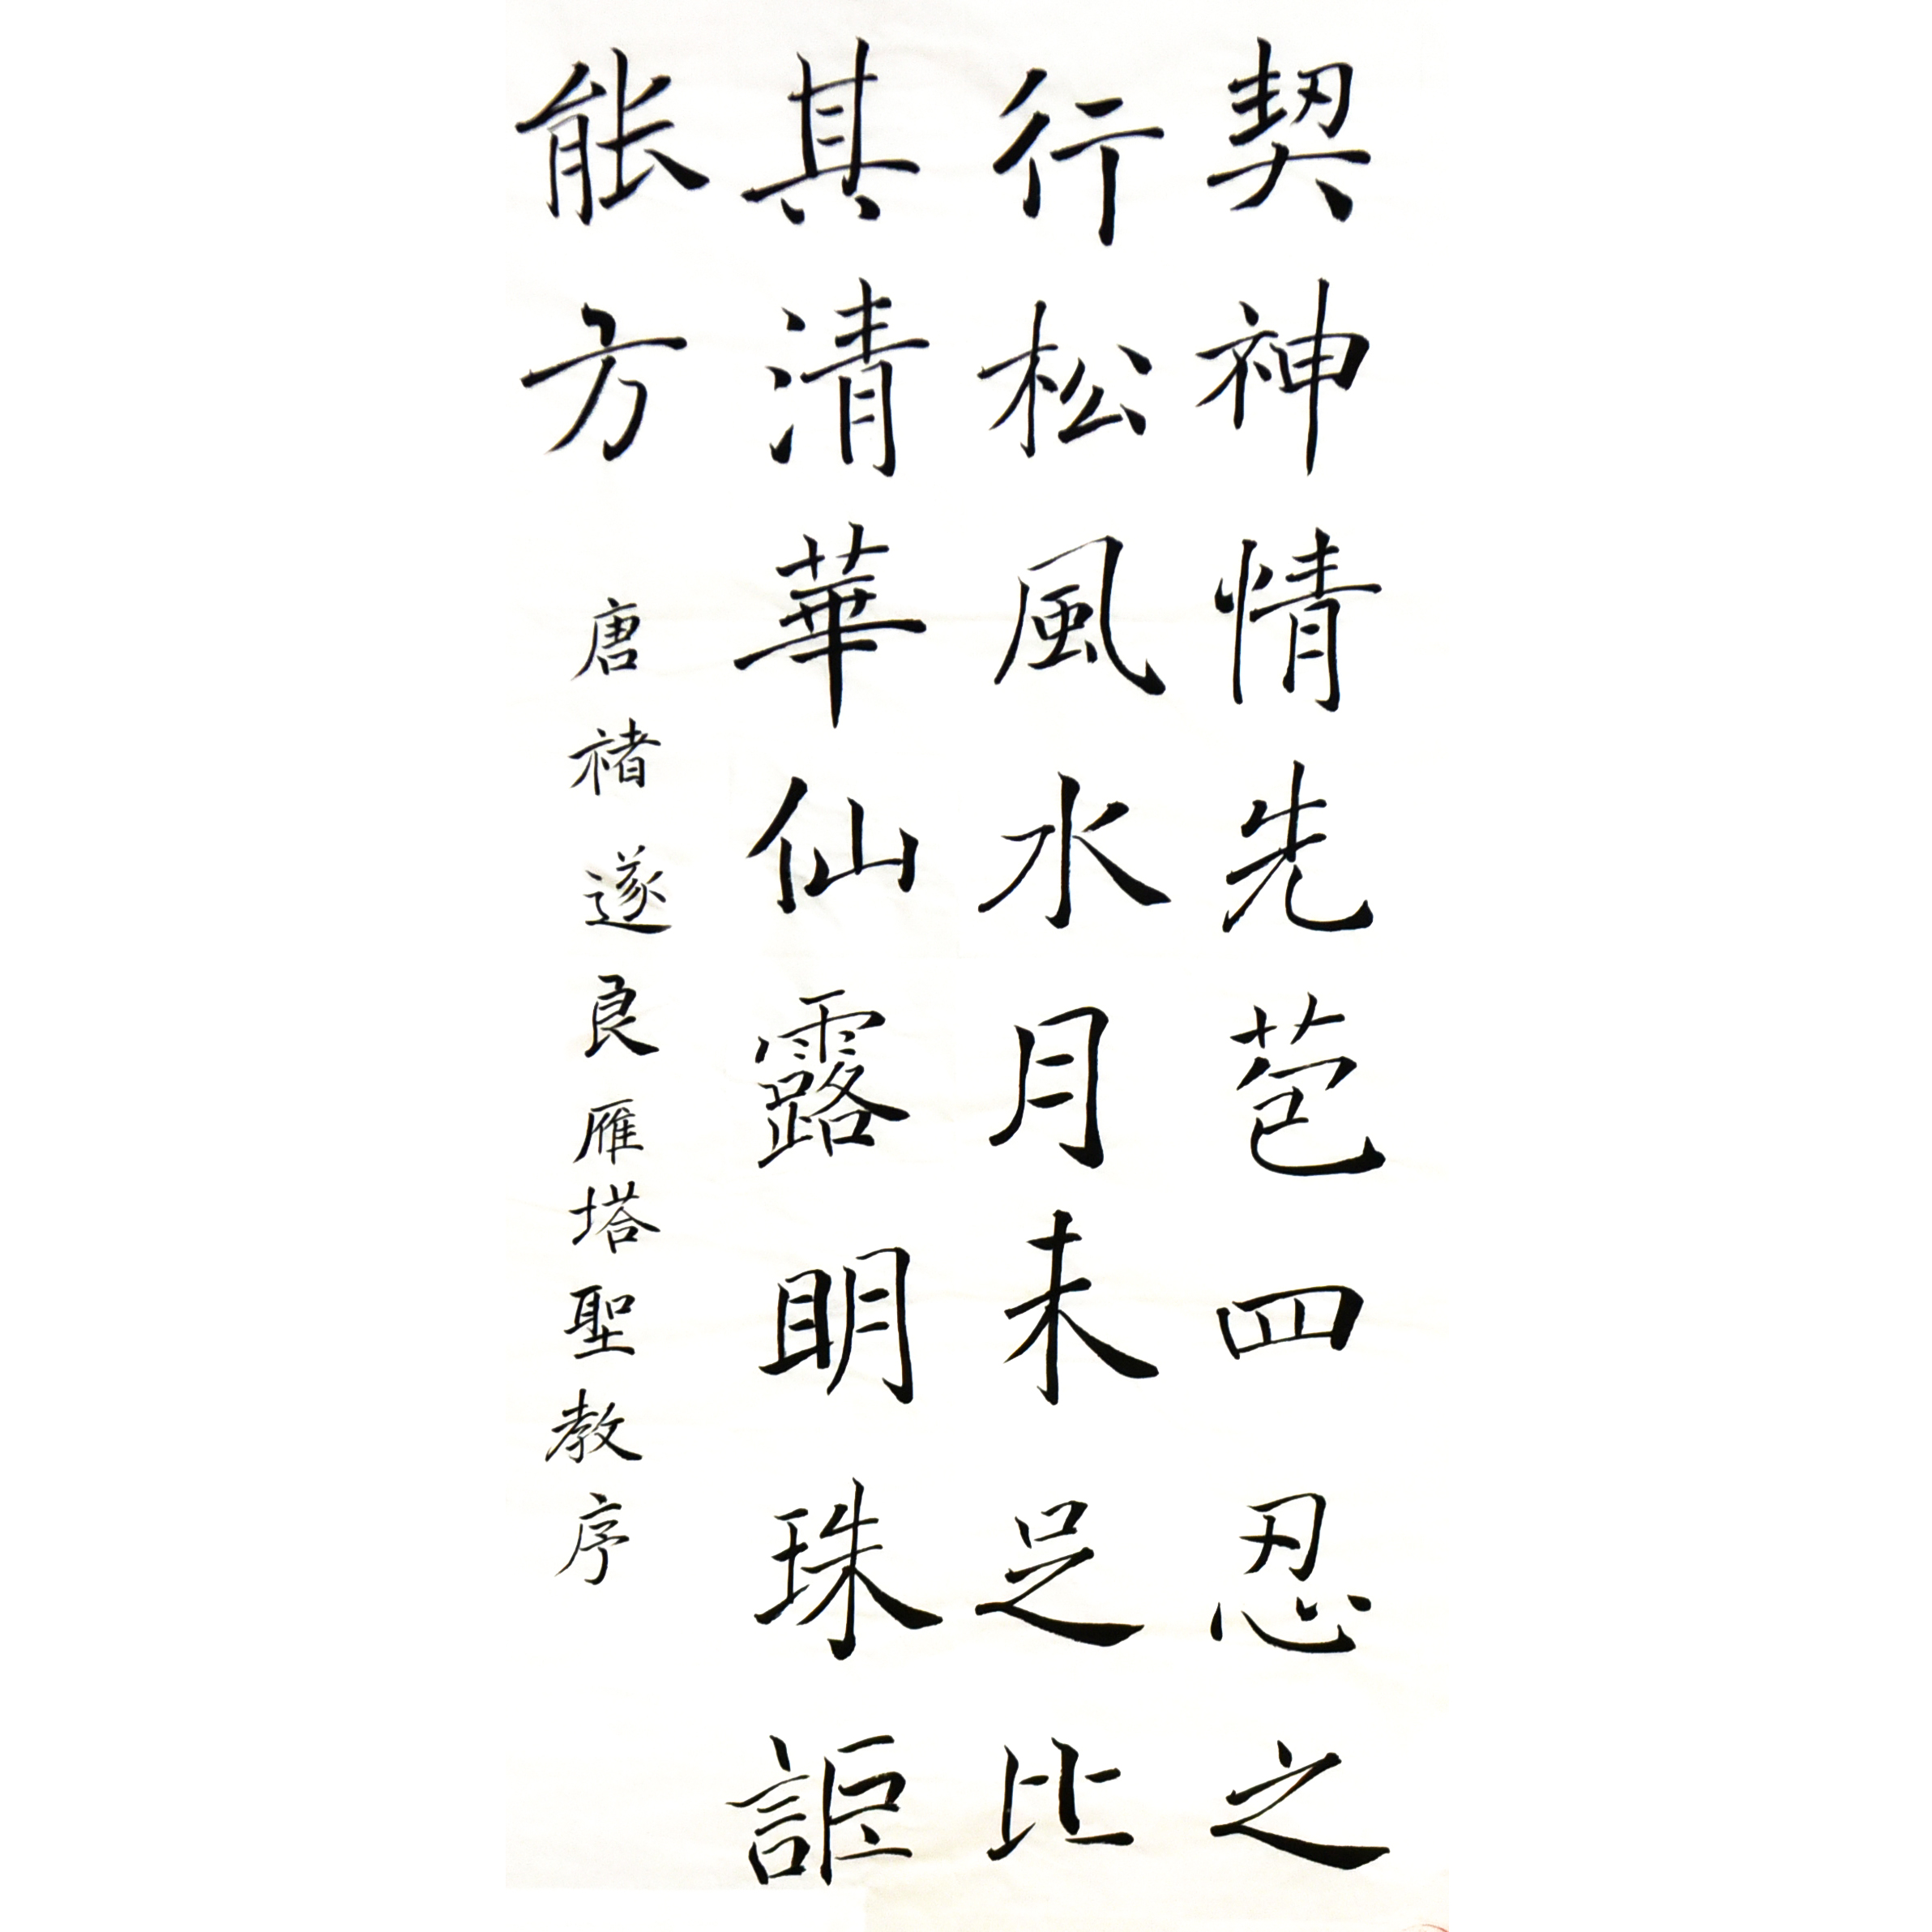 契神情先苞四忍之
行松風水月未足比
其清華仙露明珠詎
能方
唐褚遂良雁塔聖教序